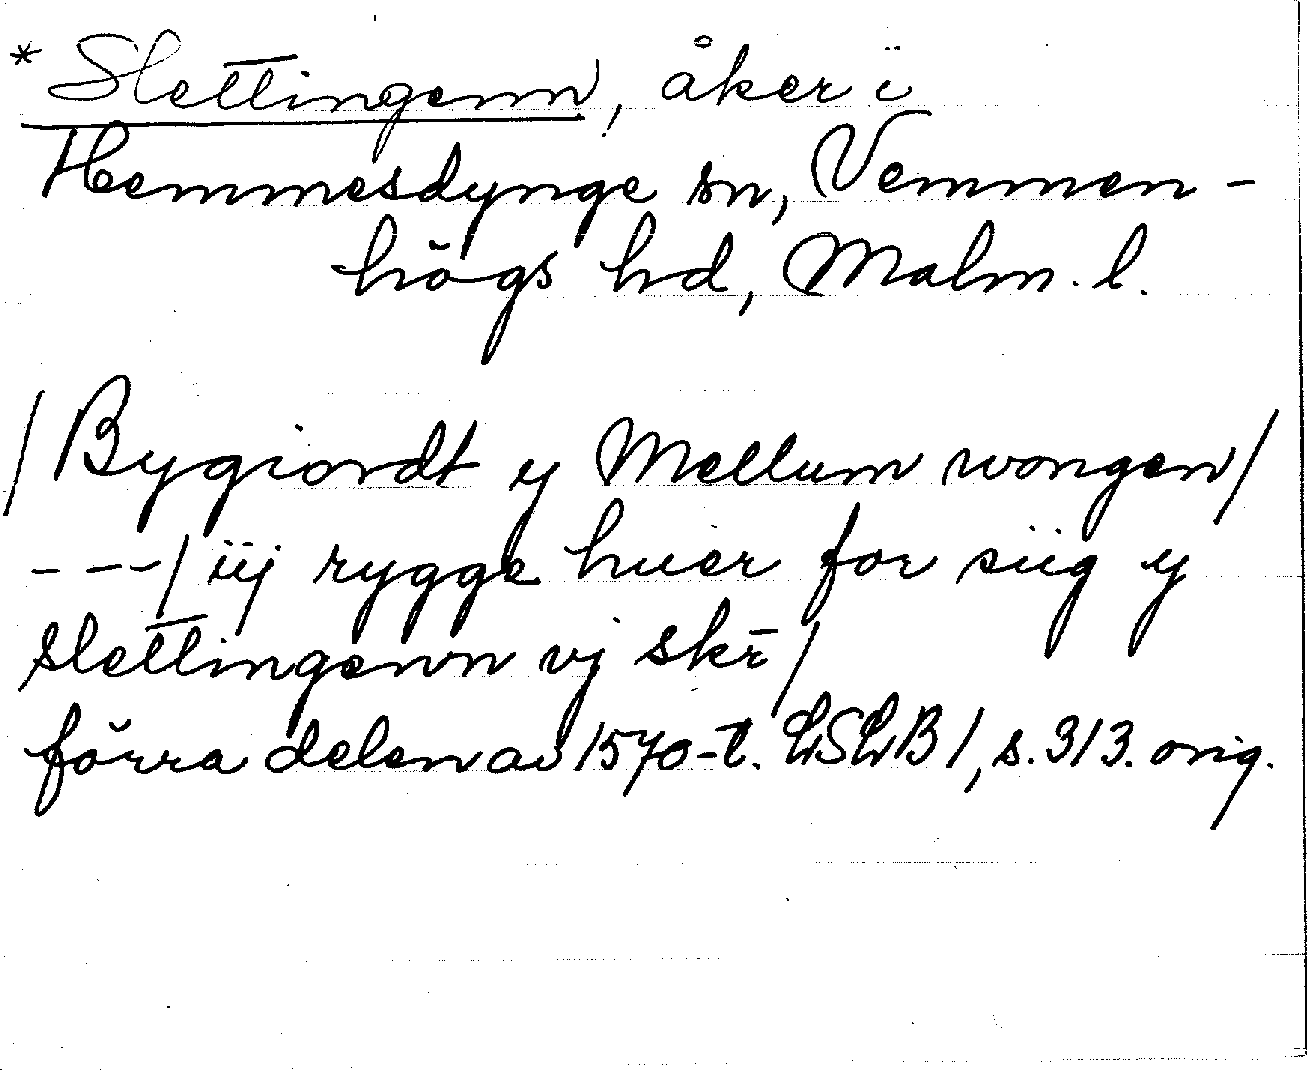 * Slettingenn, åker i
Hemmesdynge sn, Vemmen-
högs hd, Malm. l.
/Bygiordt y Mellum wongen/
---/ iij rygge huer for siig y
slettingenn vj skr̄/
förra delen av 1570-t. LSLB 1, s. 313. orig.